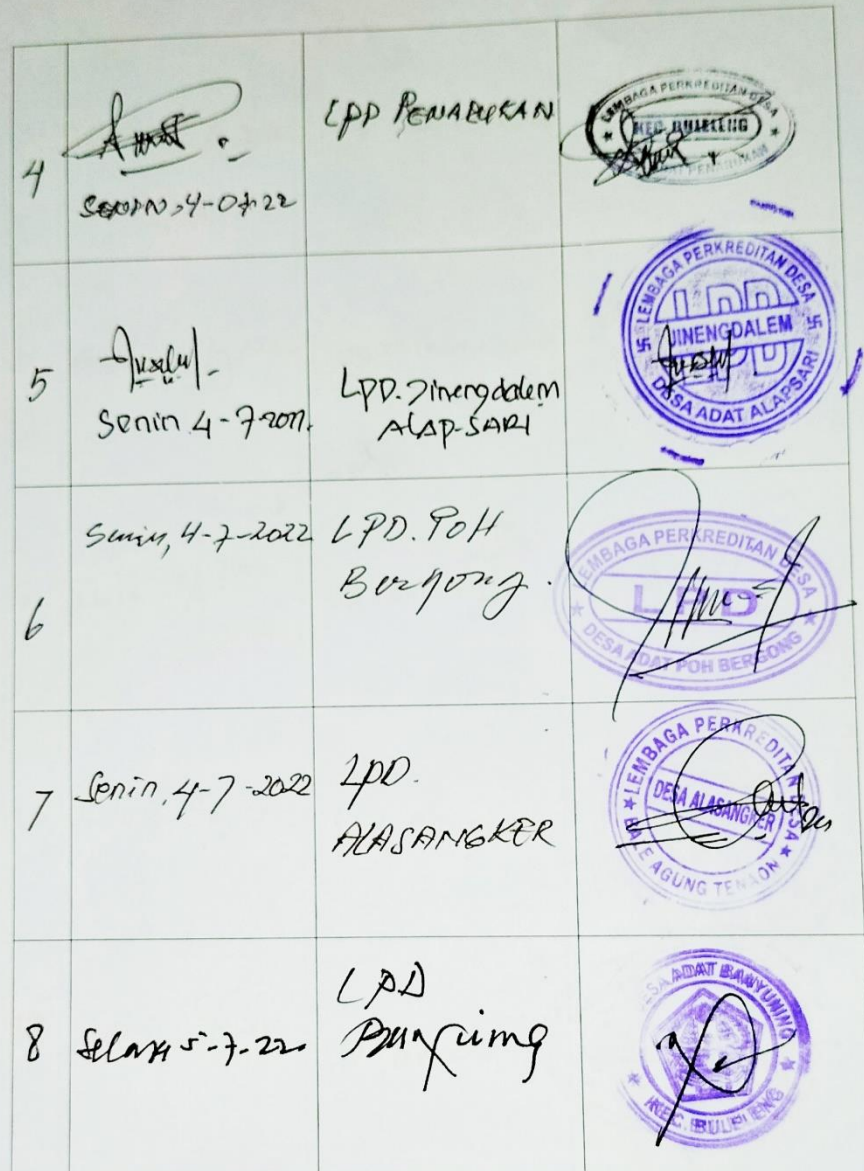 4
SENIN, 4-07-22
LPD PENARUKAN
LEMBAGA PERKREDITAN DESA
KEC. BULELENG
ADAT PENARUKAN
5
Senin 4-7-2022.
LPD. Jinengdalem
ALAP-SARI
LEMBAGA PERKREDITAN DESA
LPD
JINENGDALEM
LPD
DESA ADAT ALAPSARI
6
Senin, 4-7-2022
LPD. POH
Bergong.
LEMBAGA PERKREDITAN DESA
LPD
DESA ADAT POH BERGONG
7
Senin, 4-7-2022
LPD.
ALASANGKER
LEMBAGA PERKREDITAN DESA
DESA ALASANGKER
BALE AGUNG TENAON
8
Selasa 5-7-22
LPD
Banyuning
DESA ADAT BANYUNING
KEC. BULELENG